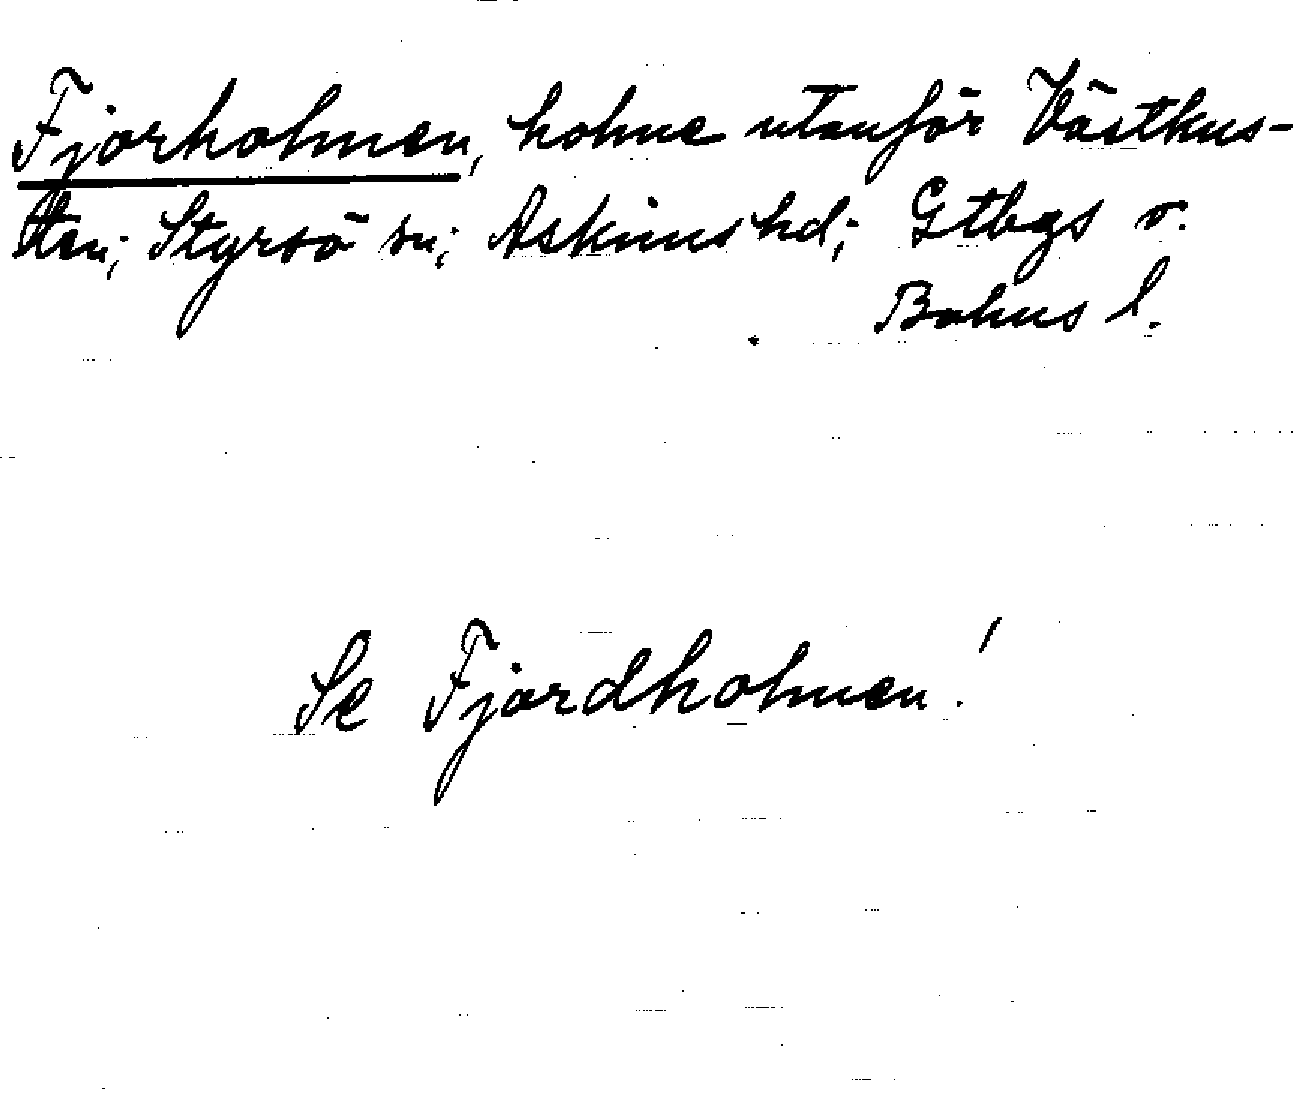 Fjorholmen, holme utanför Västkus-
ten; Styrsö sn; Askims hd; Gtbgs o.
Bohus l.
Se Fjordholmen!